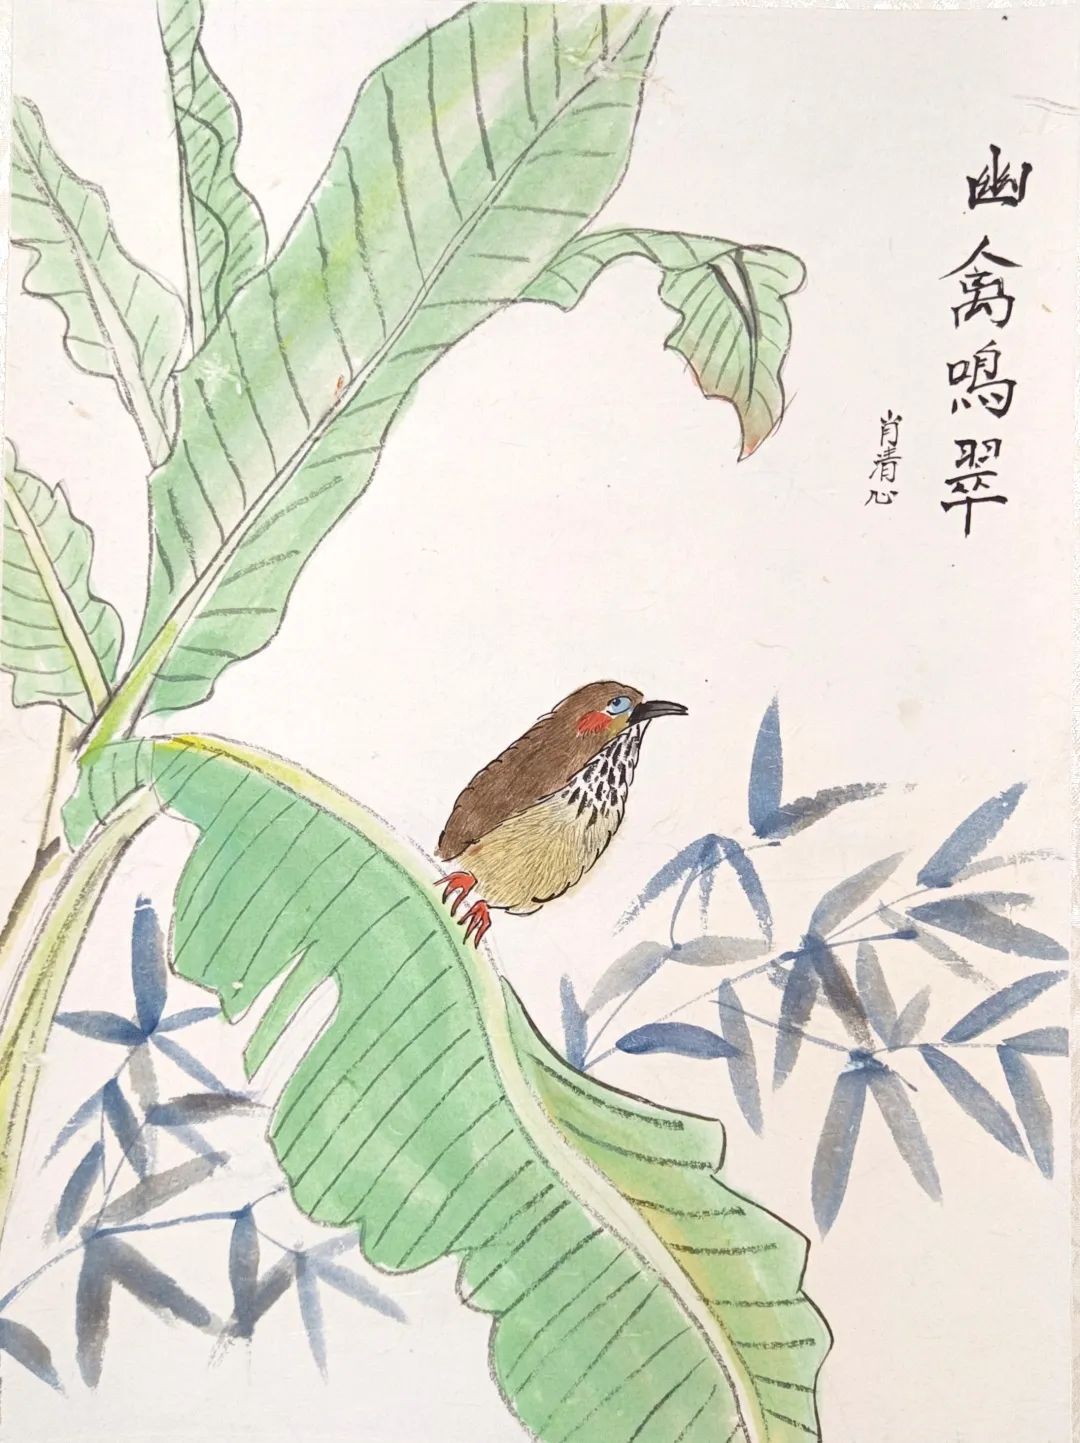 幽禽鳴翠
肖清心